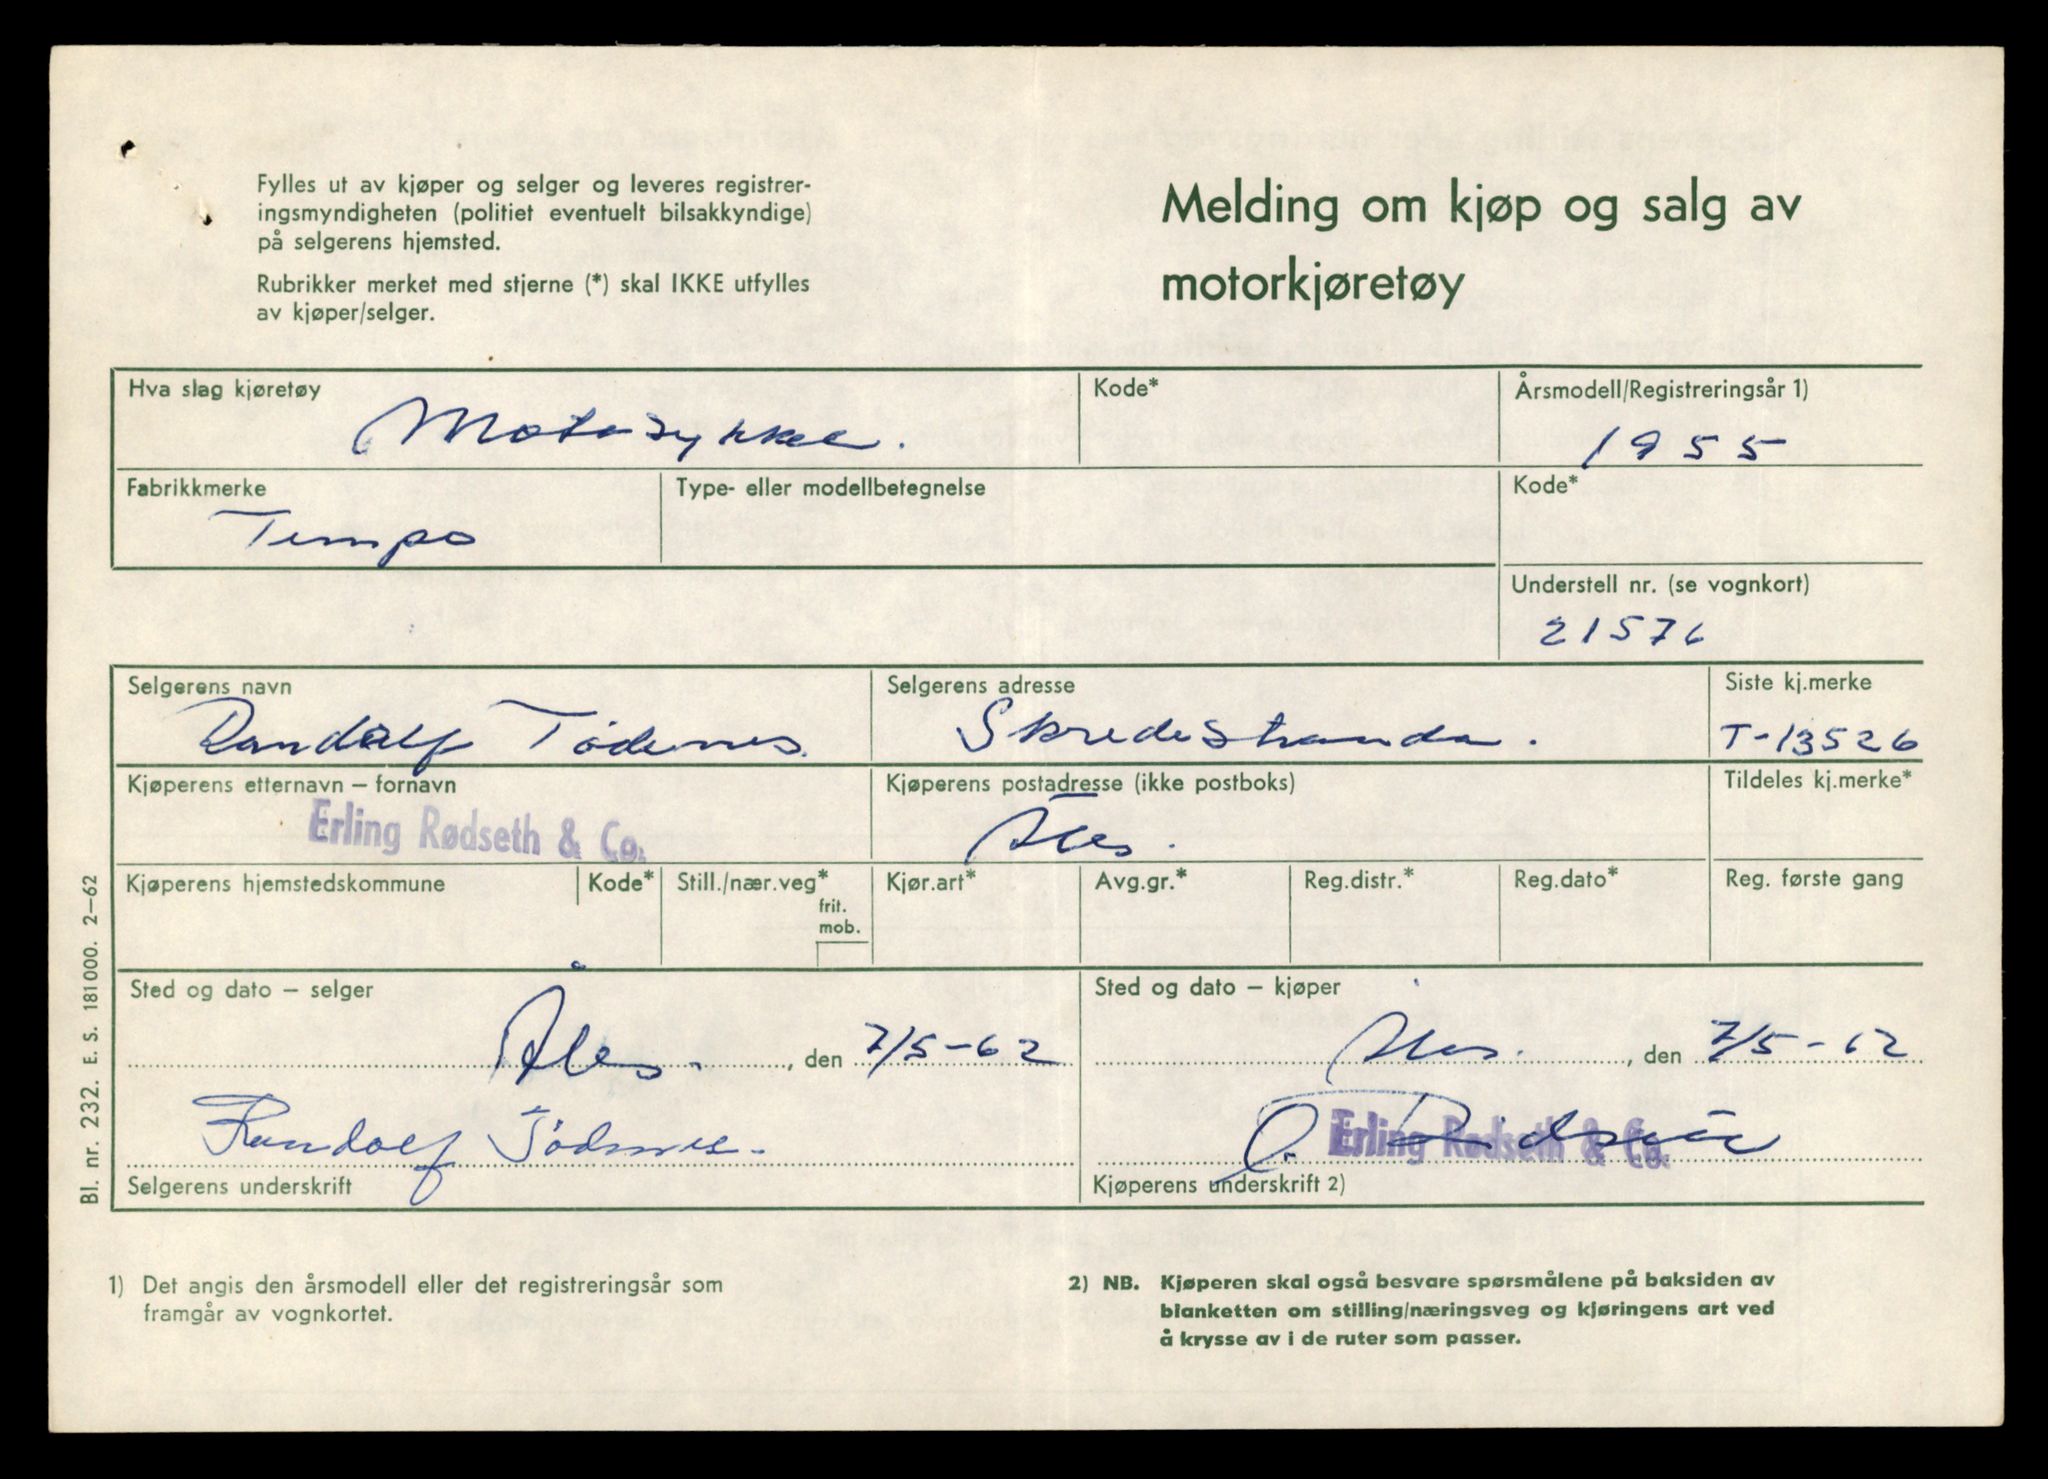 Fylles ut av kjøper og selger og leveres registrer-
ingsmyndigheten (politiet eventuelt bilsakkyndige)
på selgerens hjemsted.
Rubrikker merket med stjerne (*) skal IKKE utfylles
av kjøper/selger.
Melding om kjøp og salg av
motorkjøretøy
Hva slag kjøretøy
Motorsykkel.
Kode*
Årsmodell/Registreringsår 1)
1955
Fabrikkmerke
Tempo
Type- eller modellbetegnelse
Kode*
Understell nr. (se vognkort)
21576
Selgerens navn
Randolf Tødenes.
Selgerens adresse
Skredestranda.
Siste kj.merke
T-13526
Kjøperens etternavn – fornavn
Erling Rødseth & Co.
Kjøperens postadresse (ikke postboks)
Åles.
Tildeles kj.merke*
Kjøperens hjemstedskommune
Kode*
Still./nær.veg*
frit.
mob.
Kjør.art*
Avg.gr.*
Reg.distr.*
Reg.dato*
Reg. første gang
Sted og dato – selger
Åles., den 7/5-62
Sted og dato – kjøper
Åles., den 7/5-62
Randolf Tødenes.
Selgerens underskrift
Erling Rødseth & Co.
Kjøperens underskrift 2)
Bl. nr. 232. E. S. 181 000. 2–62
1) Det angis den årsmodell eller det registreringsår som
framgår av vognkortet.
2) NB. Kjøperen skal også besvare spørsmålene på baksiden av
blanketten om stilling/næringsveg og kjøringens art ved
å krysse av i de ruter som passer.